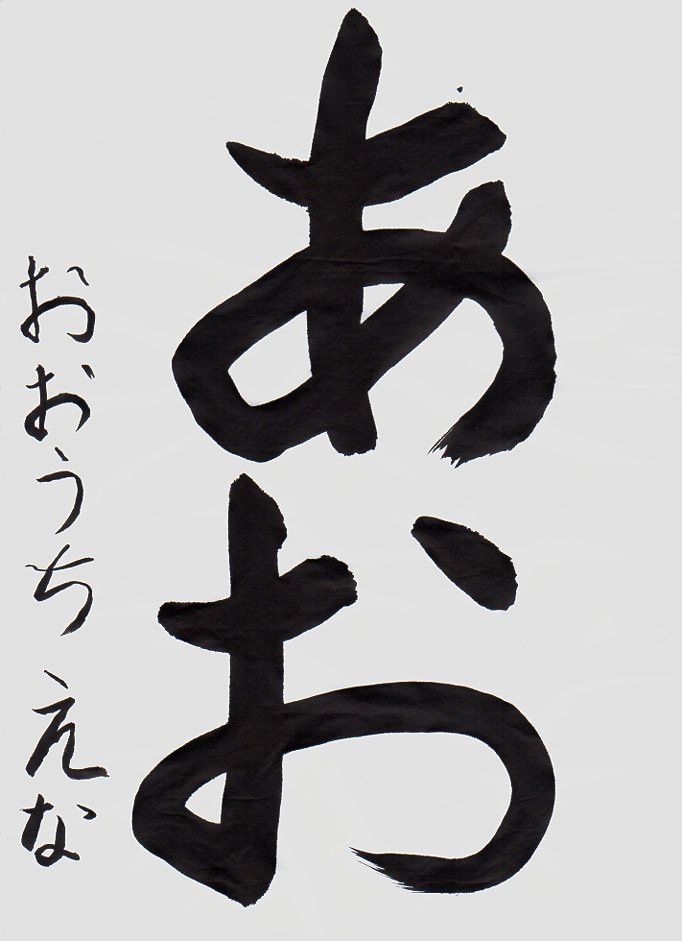 あお
おおうち えな